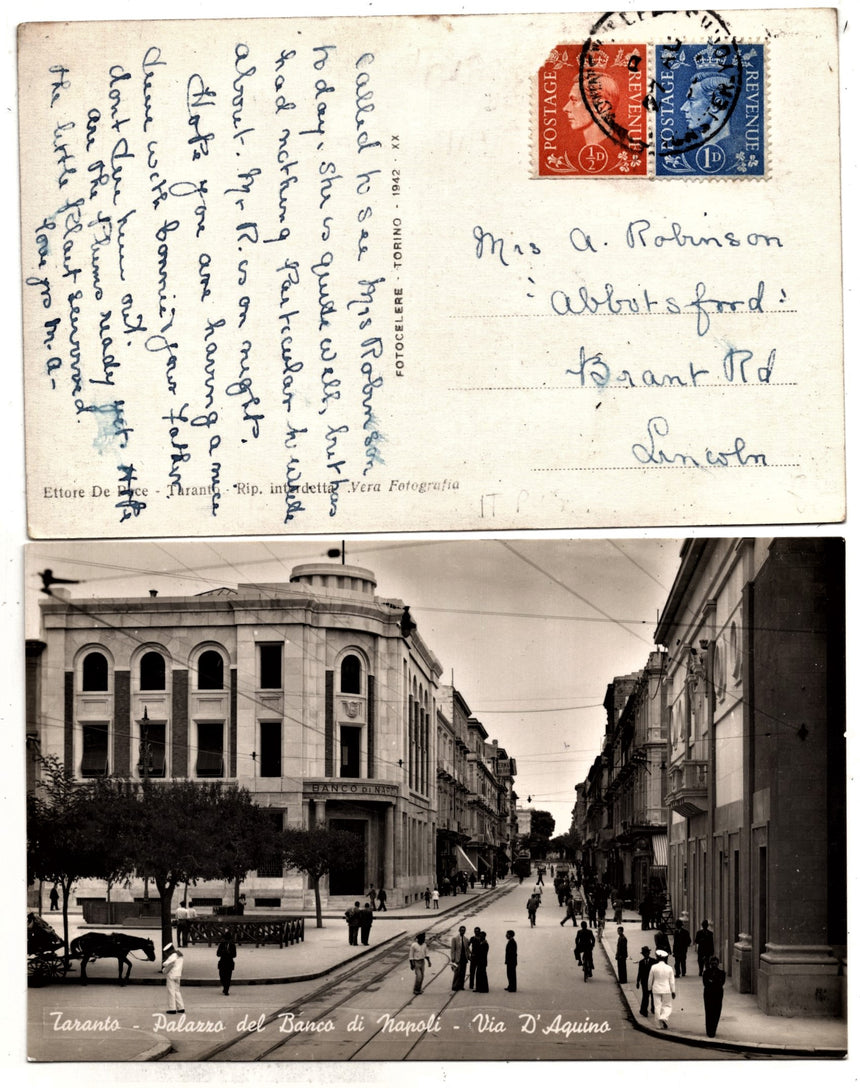 called to see Mrs Robinson
today. She is quite well, but has
had nothing particular to write
about. Mr R. is on night.
Hope you are having a nice
time with Bonnie & your Father
dont
are the plums ready yet. Hope
the little plant survived.
love yrs M. A-
FOTOCELERE - TORINO - 1942 - XX
Ettore De - Taranto - Rip. interdetta Vera Fotografia
POSTAGE REVENUE
½D
POSTAGE REVENUE
1D
Mrs A. Robinson
'Abbotsford'
Brant Rd
Lincoln
BANCO DI NAPOLI
Taranto - Palazzo del Banco di Napoli - Via D'Aquino